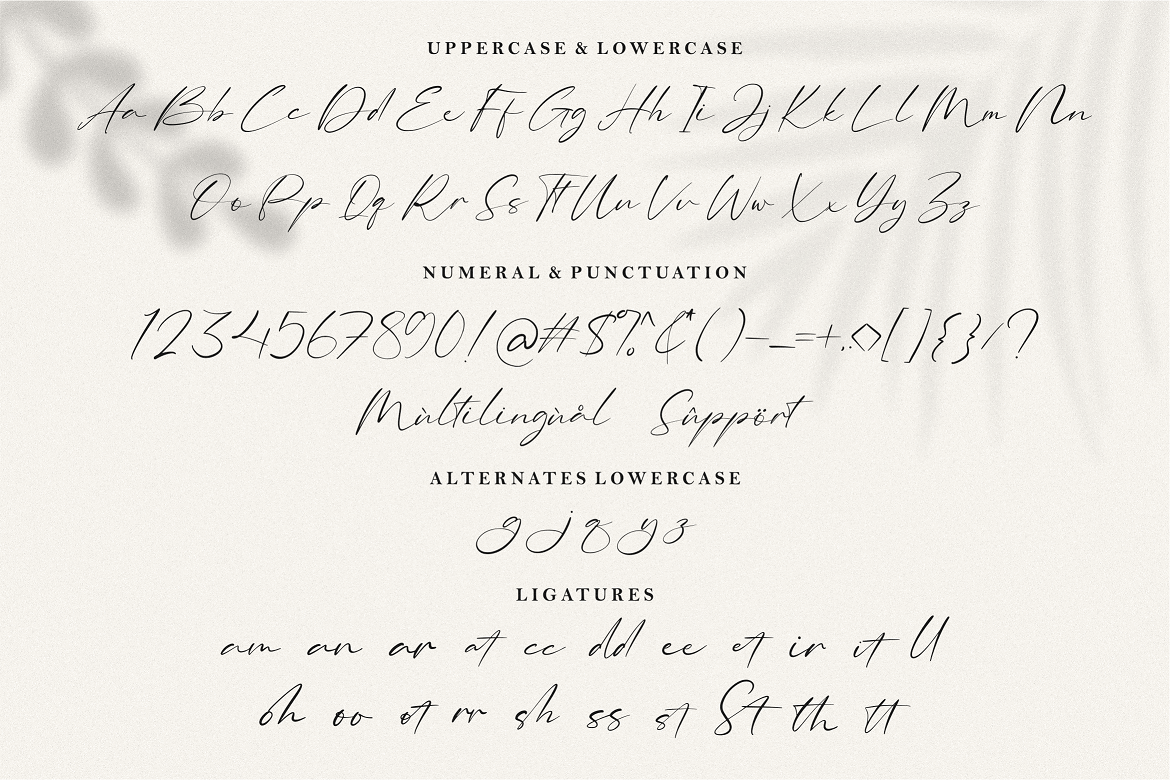 UPPERCASE & LOWERCASE
Aa Bb Cc Dd Ee Ff Gg Hh Ii Jj Kk Ll Mm Nn
Oo Pp Qq Rr Ss Tt Uu Vv Ww Xx Yy Zz
NUMERAL & PUNCTUATION
1234567890!@#$%^&*()-_=+,.<>[]{}/?
Mùltilingùål Sûppört
ALTERNATES LOWERCASE
g j q y z
LIGATURES
am an ar at cc dd ee et ir it ll
oh oo ot rr sh ss st St th tt